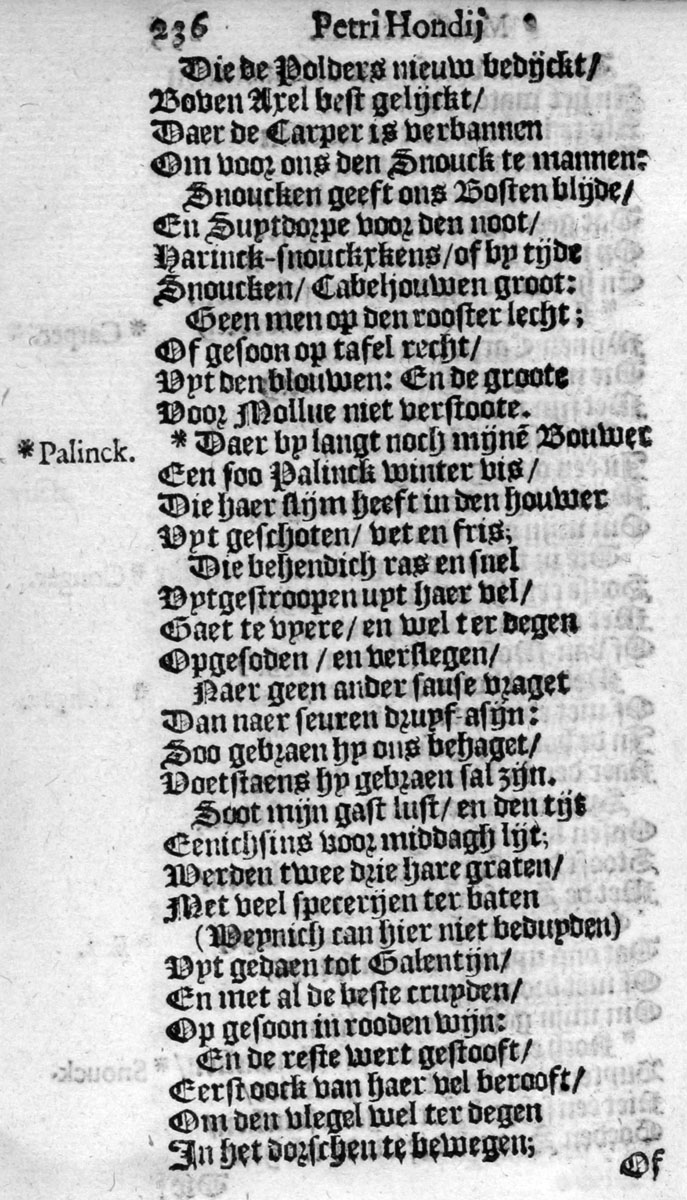 236 Petri Hondij
Die de Polders nieuw bedijckt/
Boven Axel best gelijckt/
Daer de Carper is verbannen
Om voor ons den Snouck te mannen:
Snoucken geeft ons Bosten blijde/
En Suytdorpe voor den noot/
Harinck-snouckxkens/of by tijde
Snoucken/ Cabeljouwen groot:
Geen men op den rooster lecht;
Of gesoon op tafel recht/
Uyt den blouwen: En de groote
Voor Mollue niet verstoote.
*Palinck.
* Daer by langt noch mijnē Bouwer
Een soo Palinck winter vis/
Die haer slijm heeft in den houwer
Uyt geschoten/ vet en fris;
Die behendich ras en snel
Uytgestroopen uyt haer vel/
Gaet te vyere/ en wel ter degen
Opgesoden / en verslegen/
Naer geen ander sause vraget
Dan naer seuren druyf-asijn:
Soo gebraen hy ons behaget/
Voetstaens hy gebraen sal zijn.
Soot mijn gast lust/ en den tijt
Eenichsins voor middagh lijt;
Werden twee drie hare graten/
Met veel specerijen ter baten
(Weynich can hier niet beduyden)
Uyt gedaen tot Galentijn/
En met al de beste cruyden/
Op gesoon in rooden wijn:
En de reste wert gestooft/
Eerst oock van haer vel berooft/
Om den vlegel wel ter degen
In het dorschen te bewegen;
Of